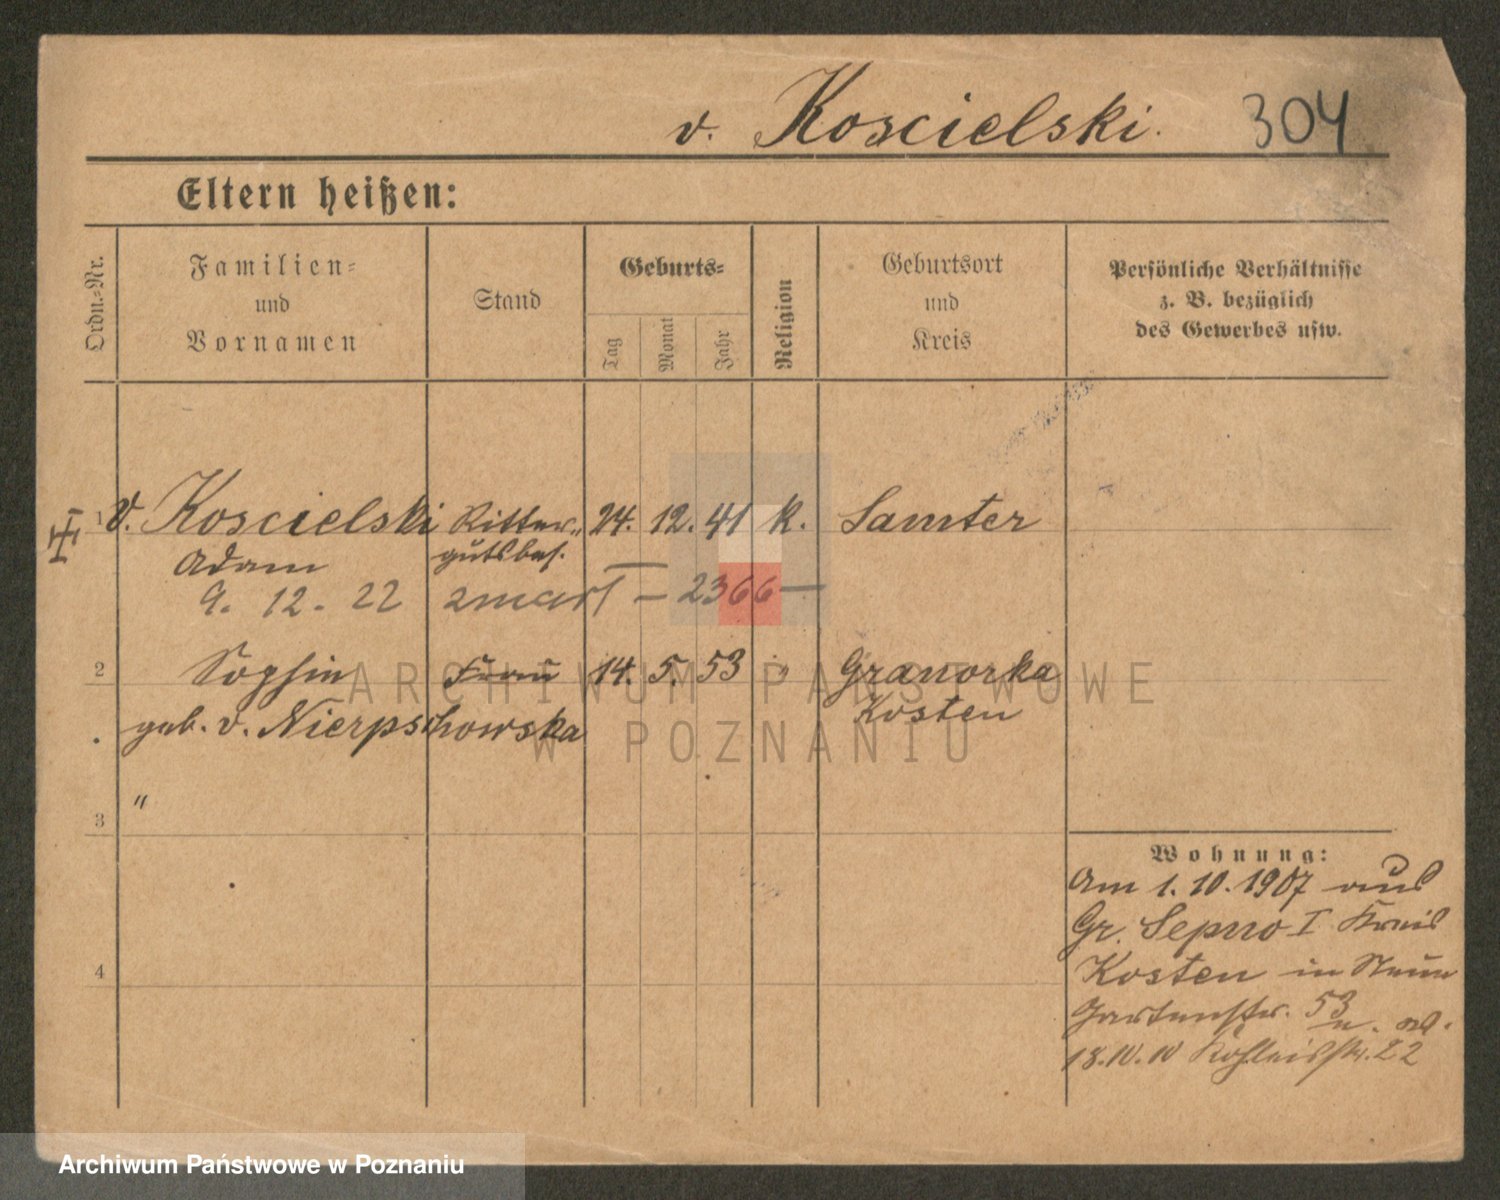 v. Koscielski. 304
Eltern heißen:
Ordn.-Nr.
Familien-
und
Vornamen
Stand
Geburts-
Tag
Monat
Jahr
Religion
Geburtsort
und
Kreis
Persönliche Verhältnisse
z. B. bezüglich
des Gewerbes usw.
1 v. Koscielski Ritter- 24. 12. 41 k. Samter
Adam gutsbes.
9. 12. 22 zmarł — 2366 —
2 Sophia Frau 14. 5. 53 " Granorka
geb. v. Nierpschowska Kosten
"
3
4
Wohnung:
Am 1.10.1907 aus
Gr. Sepno I Kreis
Kosten in
Gartenstr. 53
18.10.10 22
ARCHIWUM PAŃSTWOWE
W POZNANIU
Archiwum Państwowe w Poznaniu